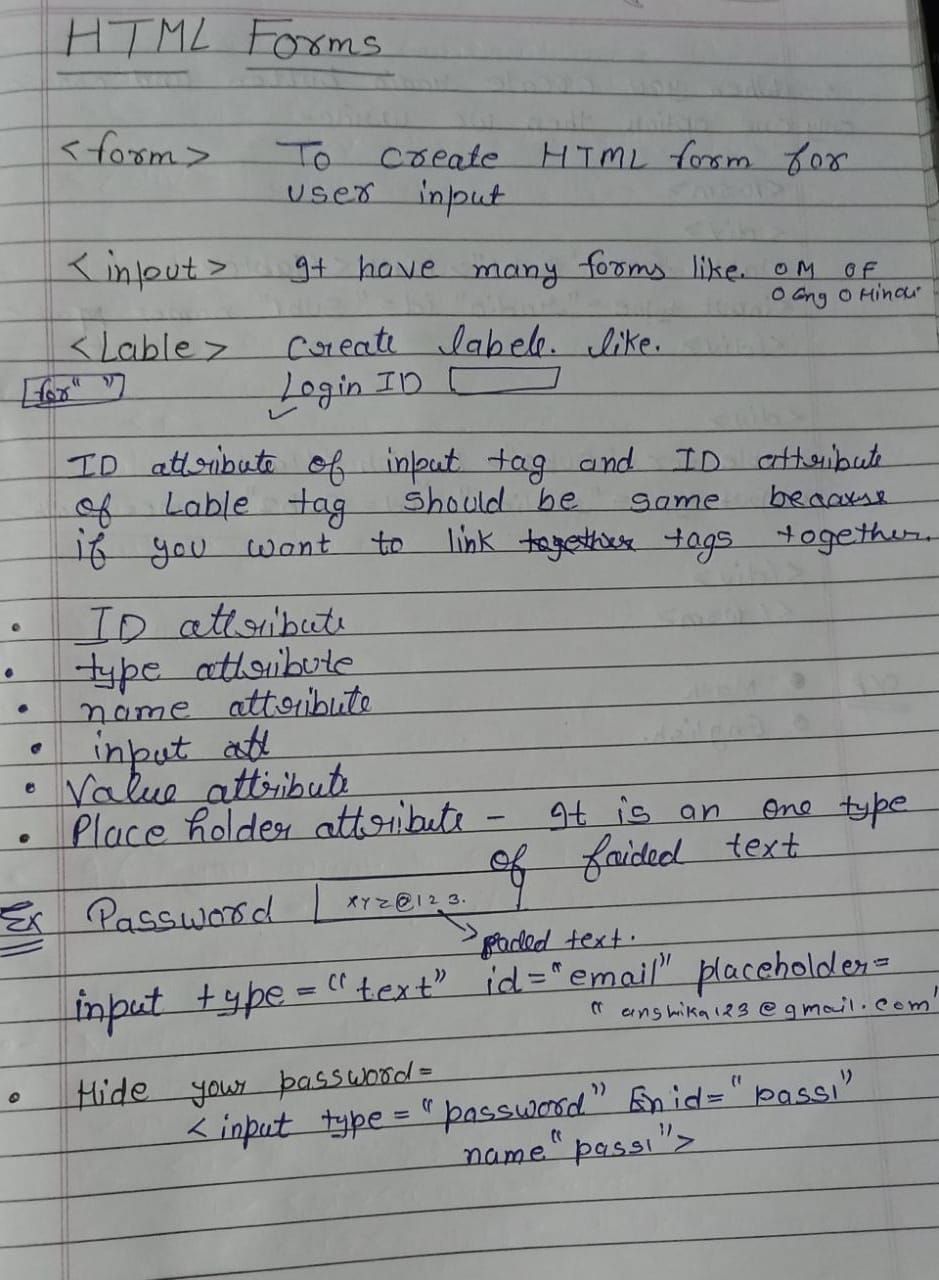 HTML Forms
<form> To create HTML form for
user input
<input> It have many forms like. o M o F
o Eng o Hindi
<Lable> Create labels. like.
[for" "] Login ID
ID attribute of input tag and ID attribute
of Lable tag should be same because
if you want to link together tags together.
• ID attribute
• type attribute
• name attribute
• input att
• Value attribute
• Place holder attribute - It is an one type
of faided text
Ex Password XYZ@123.
faded text.
input type = "text" id="email" placeholder=
"anshika123@gmail.com"
• Hide your password=
<input type = "password" id= "pass1"
name "pass1">